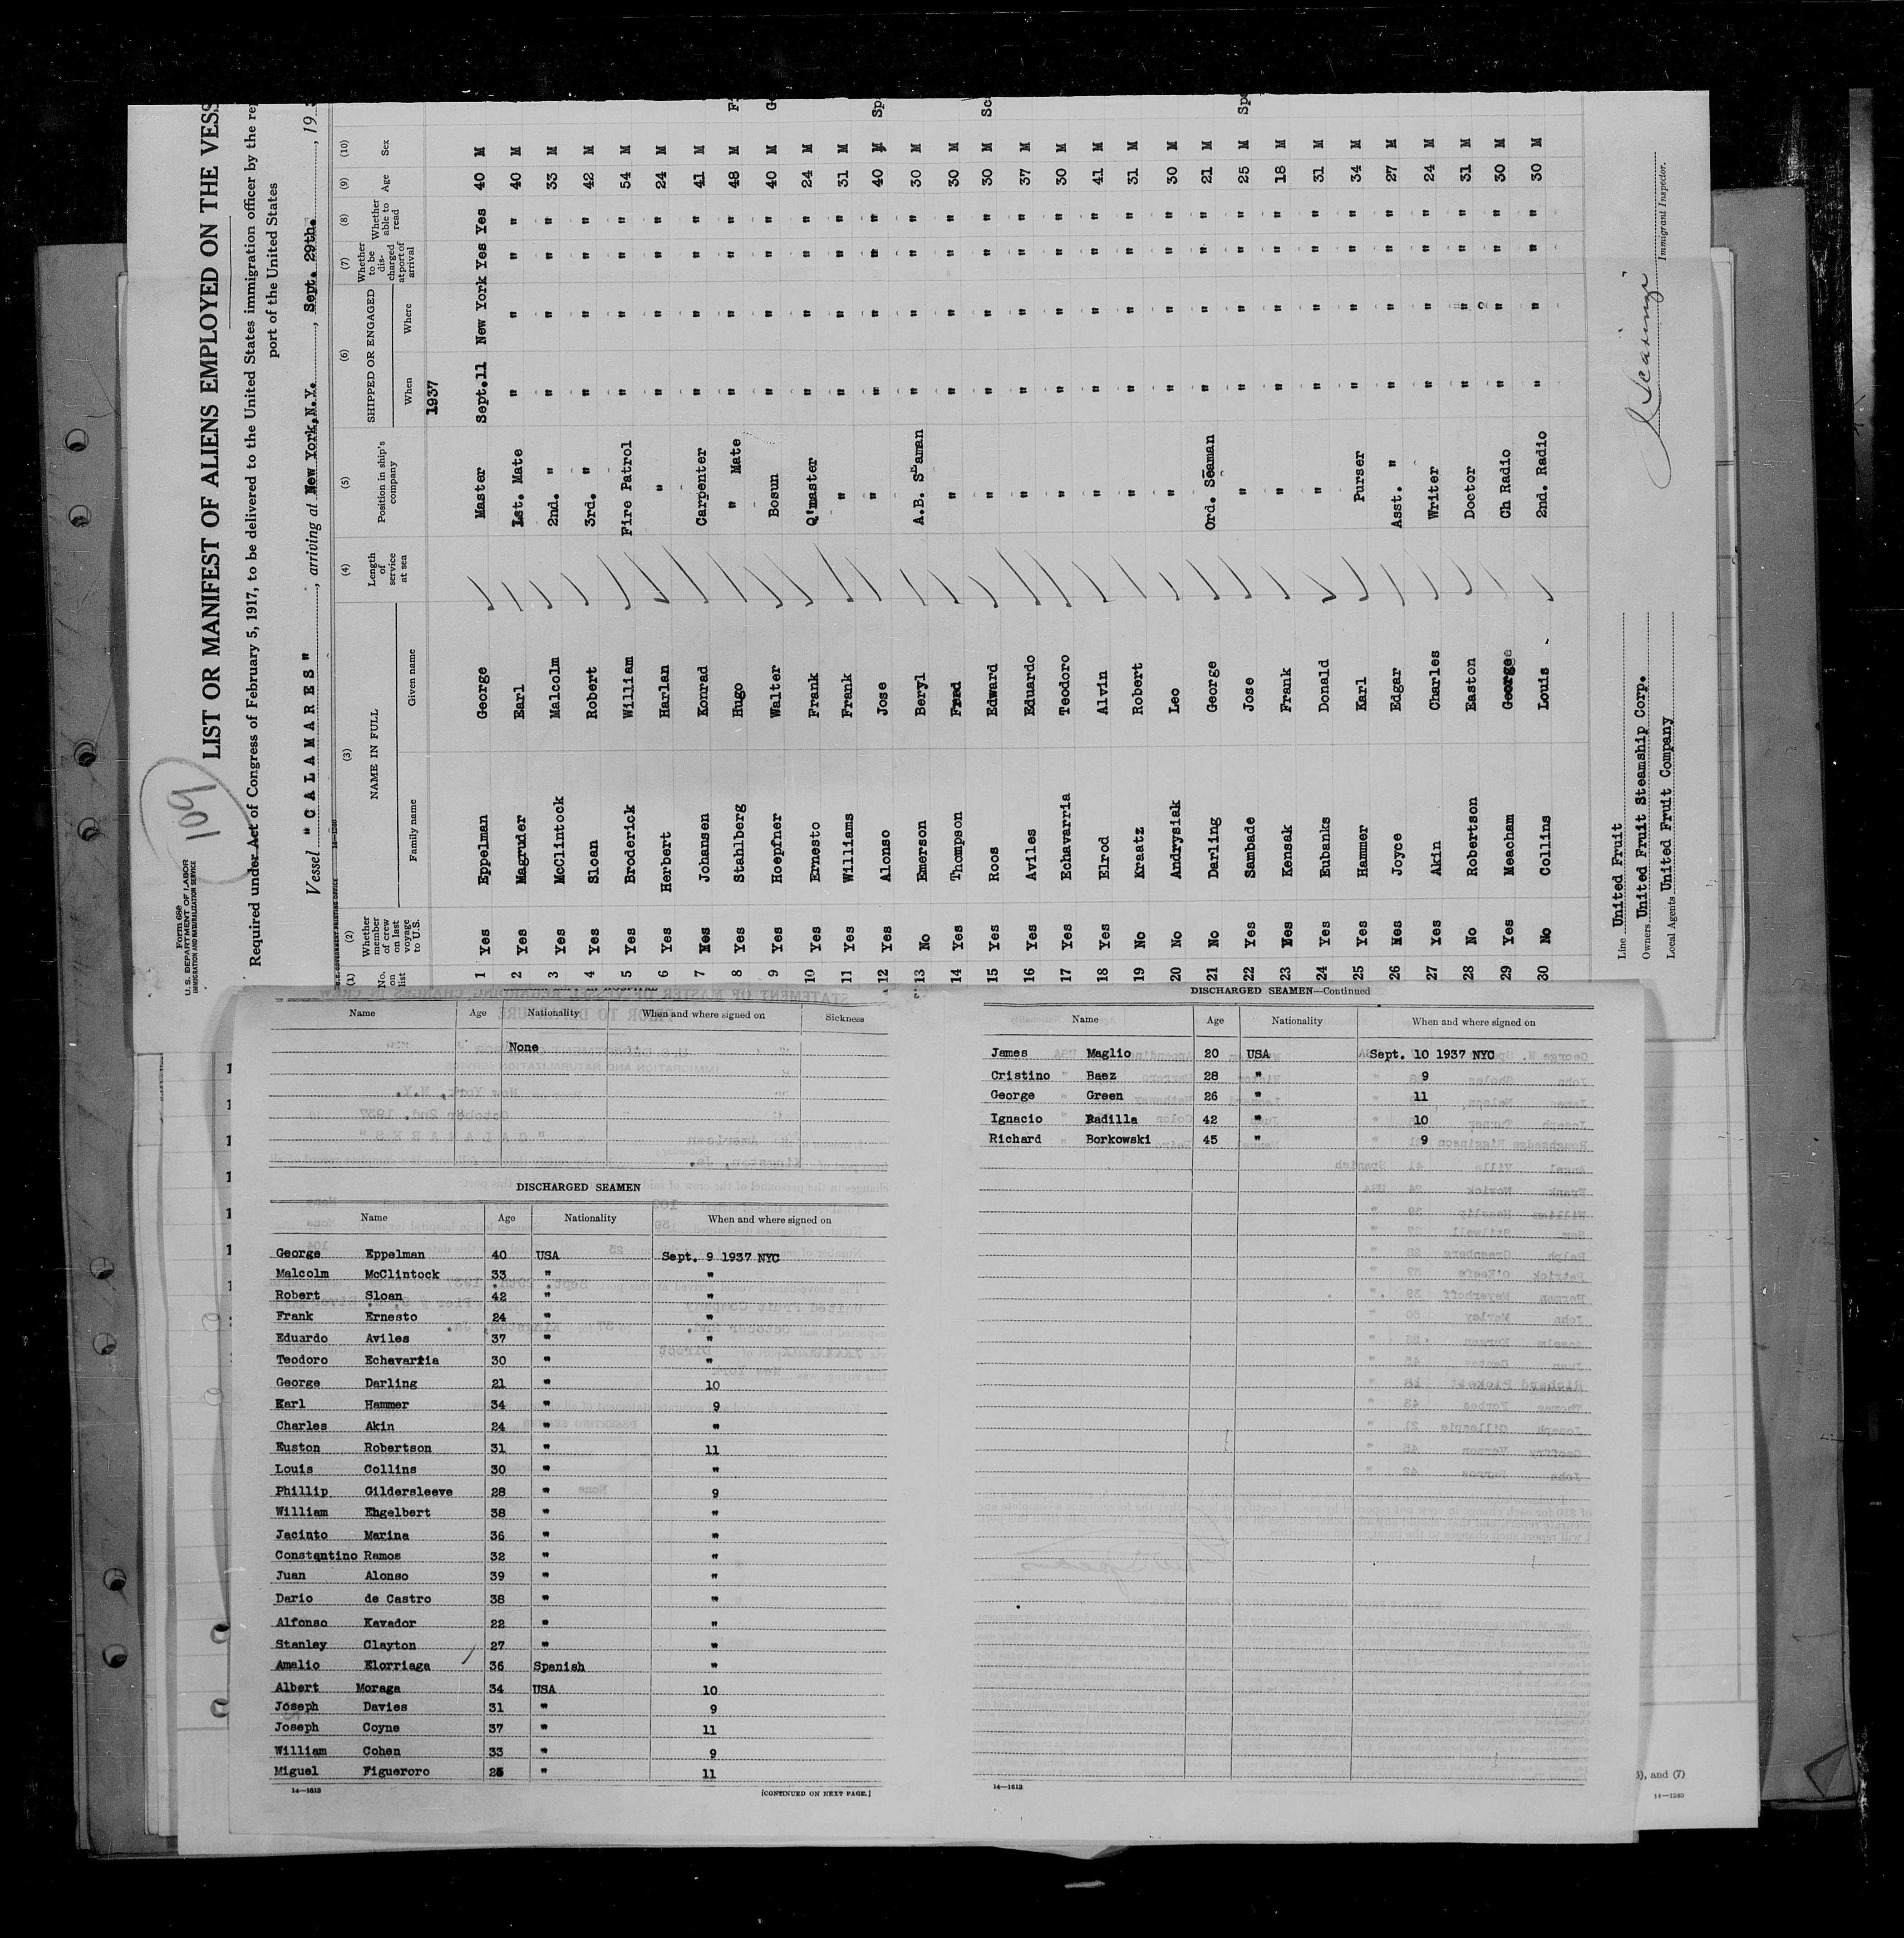 Form 688
U. S. DEPARTMENT OF LABOR
IMMIGRATION AND NATURALIZATION SERVICE
109
LIST OR MANIFEST OF ALIENS EMPLOYED ON THE VESS
Required under Act of Congress of February 5, 1917, to be delivered to the United States immigration officer by the re
port of the United States
Vessel "CALAMARES", arriving at New York, N.Y., Sept. 29th., 19
(1) (2) (3) (4) (5) (6) (7) (8) (9) (10)
No. on list Whether member of crew on last voyage to U.S. NAME IN FULL Family name Given name Length of service at sea Position in ship's company SHIPPED OR ENGAGED When Where Whether to be discharged at port of arrival Whether able to read Age Sex
1937
1 Yes Eppelman George Master Sept.11 New York Yes Yes 40 M
2 Yes Magruder Earl 1st. Mate " " " " 40 M
3 Yes McClintock Malcolm 2nd. " " " " " 33 M
4 Yes Sloan Robert 3rd. " " " " " 42 M
5 Yes Broderick William Fire Patrol " " " " 54 M
6 Yes Herbert Harlan " " " " " 24 M
7 Yes Johansen Konrad Carpenter " " " " 41 M
8 Yes Stahlberg Hugo " Mate " " " " 48 M F
9 Yes Hoepfner Walter Bosun " " " " 40 M G
10 Yes Ernesto Frank Q'master " " " " 24 M
11 Yes Williams Frank " " " " " 31 M
12 Yes Alonso Jose " " " " " 40 M Sp
13 No Emerson Beryl A.B. Seaman " " " " 30 M
14 Yes Thompson Fred " " " " " 30 M
15 Yes Roos Edward " " " " " 30 M Sc
16 Yes Aviles Eduardo " " " " " 37 M
17 Yes Echavarria Teodoro " " " " " 30 M
18 Yes Elrod Alvin " " " " " 41 M
19 No Kraatz Robert " " " " " 31 M
20 No Andrysiak Leo " " " " " 30 M
21 No Darling George Ord. Seaman " " " " 21 M
22 Yes Sambade Jose " " " " " 25 M Spa
23 Yes Kensak Frank " " " " " 18 M
24 Yes Eubanks Donald " " " " " 31 M
25 Yes Hammer Karl Purser " " " " 34 M
26 Yes Joyce Edgar Asst. " " " " " 27 M
27 Yes Akin Charles Writer " " " " 24 M
28 No Robertson Easton Doctor " " " " 31 M
29 Yes Meacham George Ch Radio " " " " 30 M
30 No Collins Louis 2nd. Radio " " " " 30 M
Line United Fruit
Owners United Fruit Steamship Corp.
Local Agents United Fruit Company
Immigrant Inspector.
Name Age Nationality When and where signed on Sickness
None
DISCHARGED SEAMEN
Name Age Nationality When and where signed on
George Eppelman 40 USA Sept. 9 1937 NYC
Malcolm McClintock 33 " "
Robert Sloan 42 " "
Frank Ernesto 24 " "
Eduardo Aviles 37 " "
Teodoro Echavarria 30 " "
George Darling 21 " 10
Karl Hammer 34 " 9
Charles Akin 24 " "
Euston Robertson 31 " 11
Louis Collins 30 " "
Phillip Gildersleeve 28 " 9
William Ehgelbert 38 " "
Jacinto Marina 36 " "
Constantino Ramos 32 " "
Juan Alonso 39 " "
Dario de Castro 38 " "
Alfonso Kavador 22 " "
Stanley Clayton 27 " "
Amalio Elorriaga 36 Spanish "
Albert Moraga 34 USA 10
Joseph Davies 31 " 9
Joseph Coyne 37 " 11
William Cohen 33 " 9
Miguel Figueroro 25 " 11
14—1613
[CONTINUED ON NEXT PAGE.]
DISCHARGED SEAMEN—Continued
Name Age Nationality When and where signed on
James Maglio 20 USA Sept. 10 1937 NYC
Cristino Baez 28 " 9
George Green 26 " 11
Ignacio Radilla 42 " 10
Richard Borkowski 45 " 9
14—1613
), and (7)
14—1240